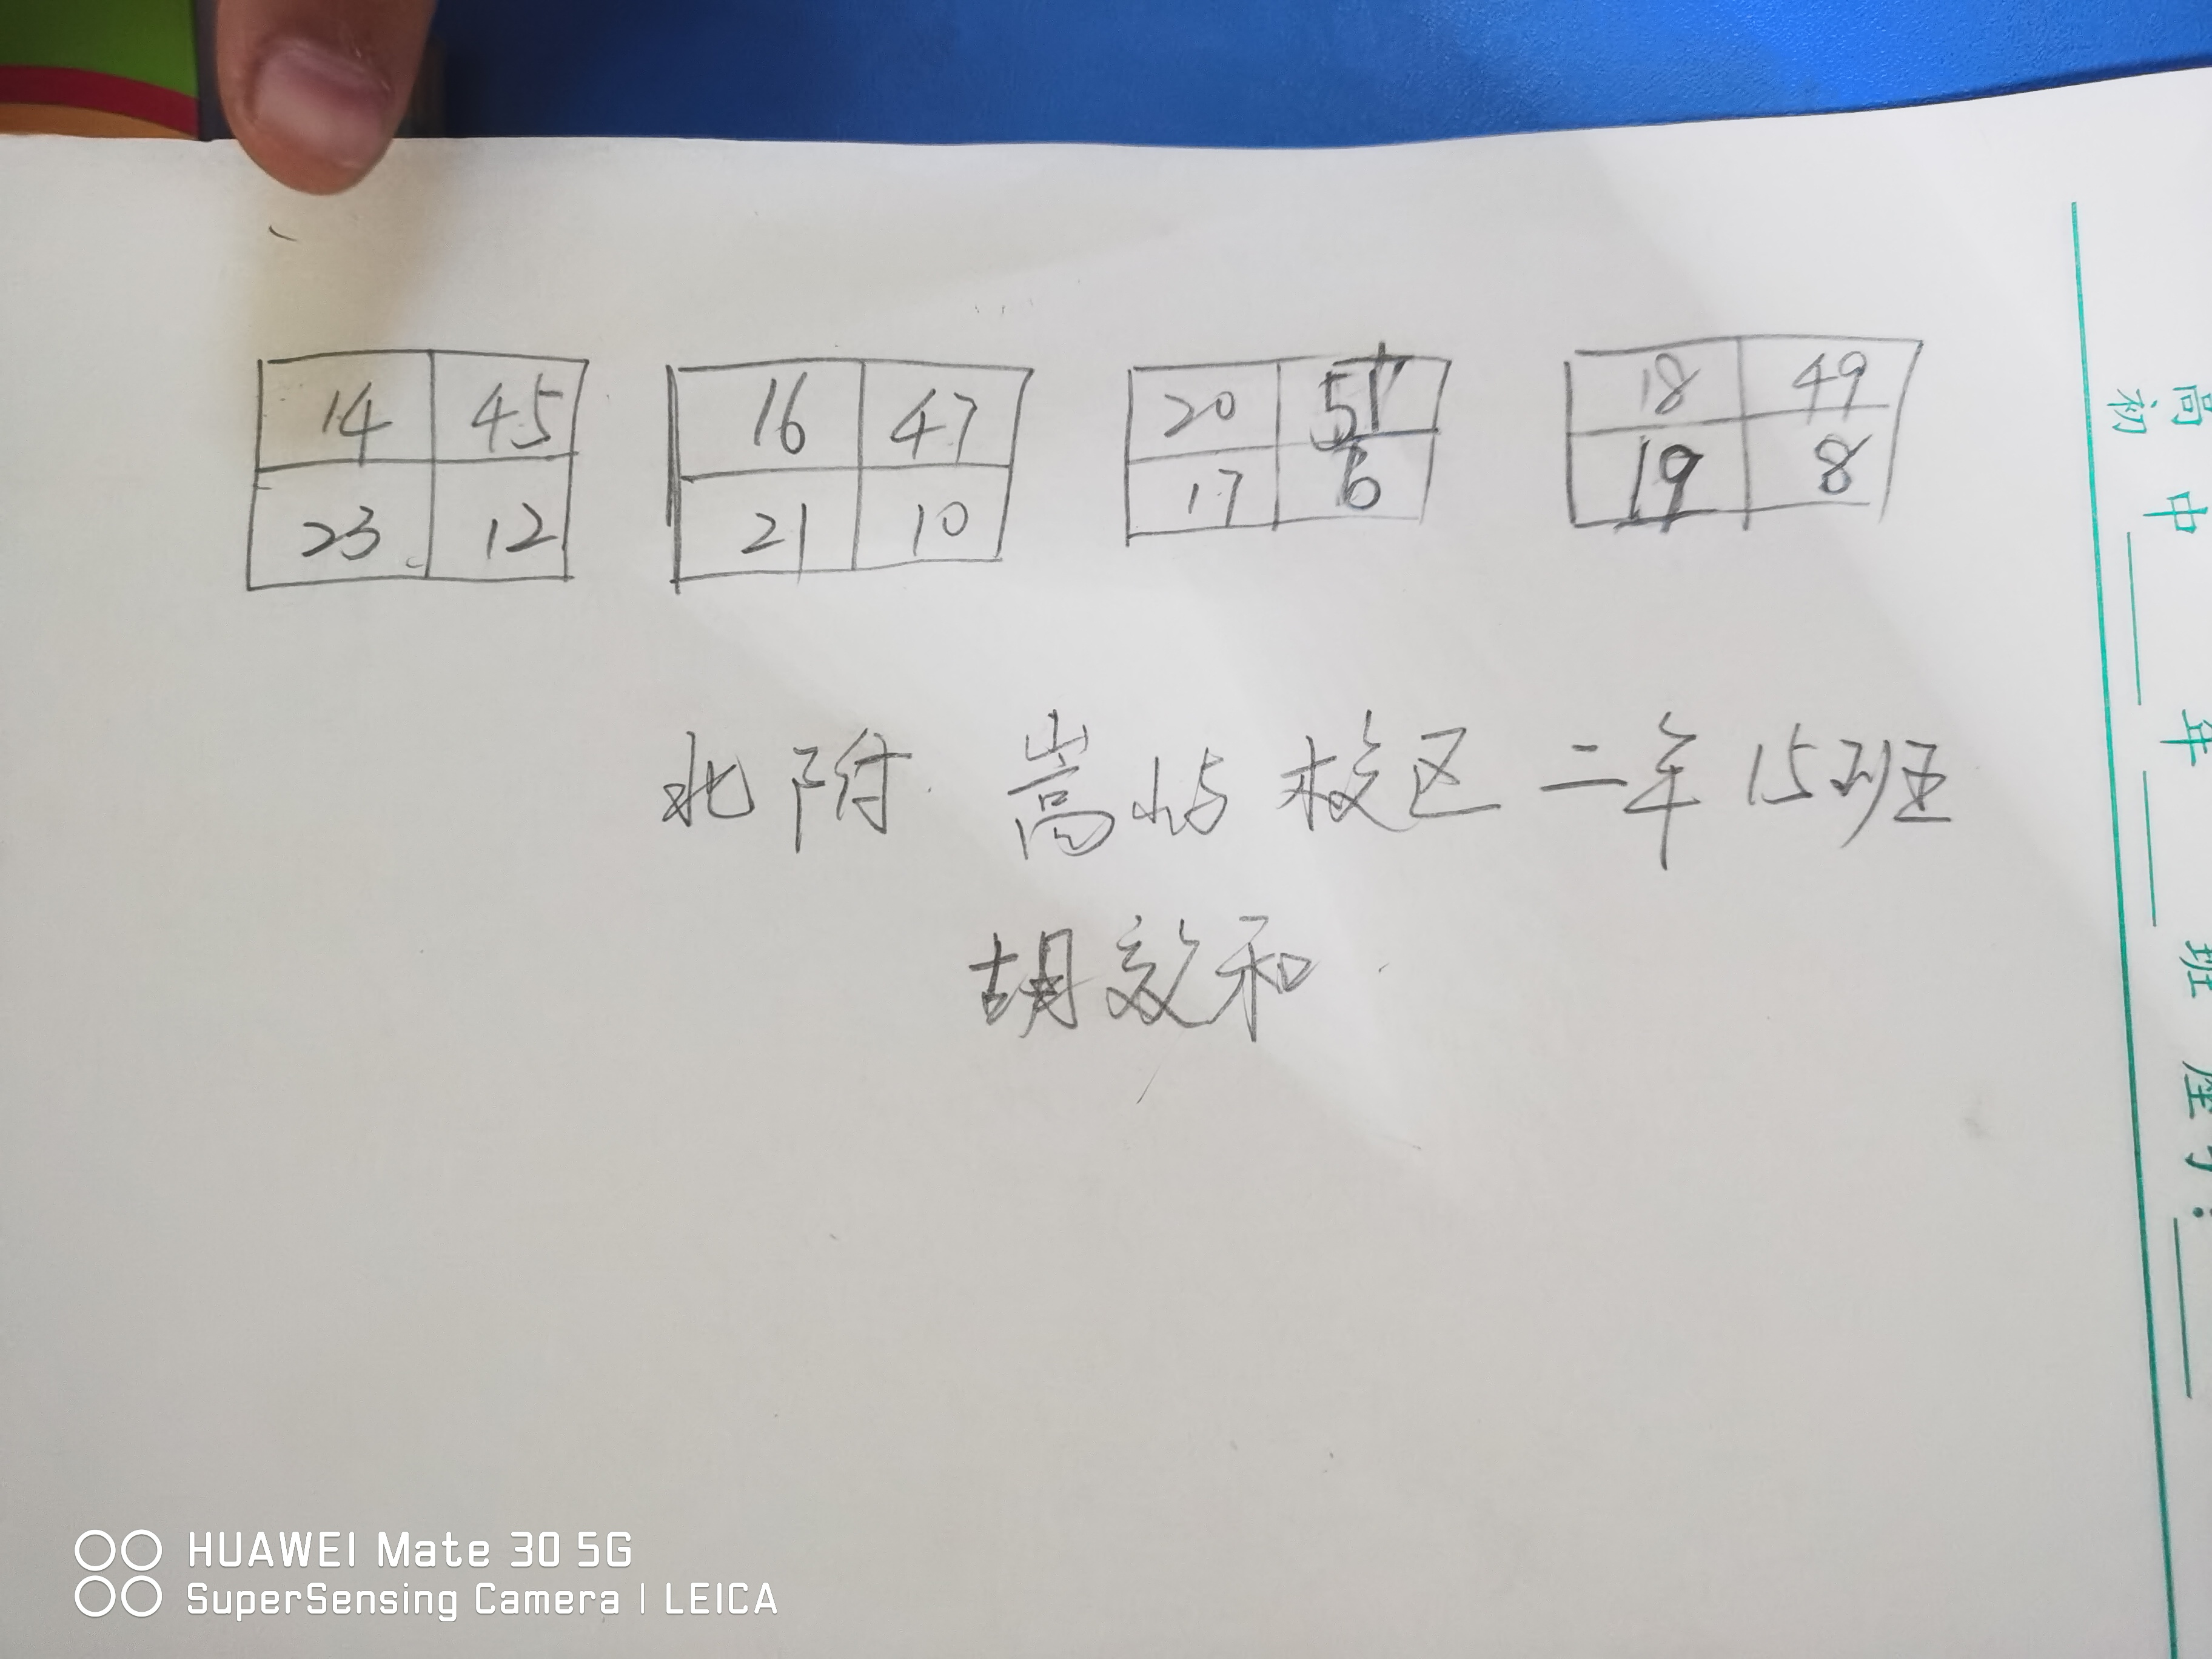 14 45 16 47 20 51 18 49
23 12 21 10 17 6 19 8
北附 嵩屿校区 二年15班
胡效和
高 初 中 年 班 座号:
HUAWEI Mate 30 5G
SuperSensing Camera | LEICA